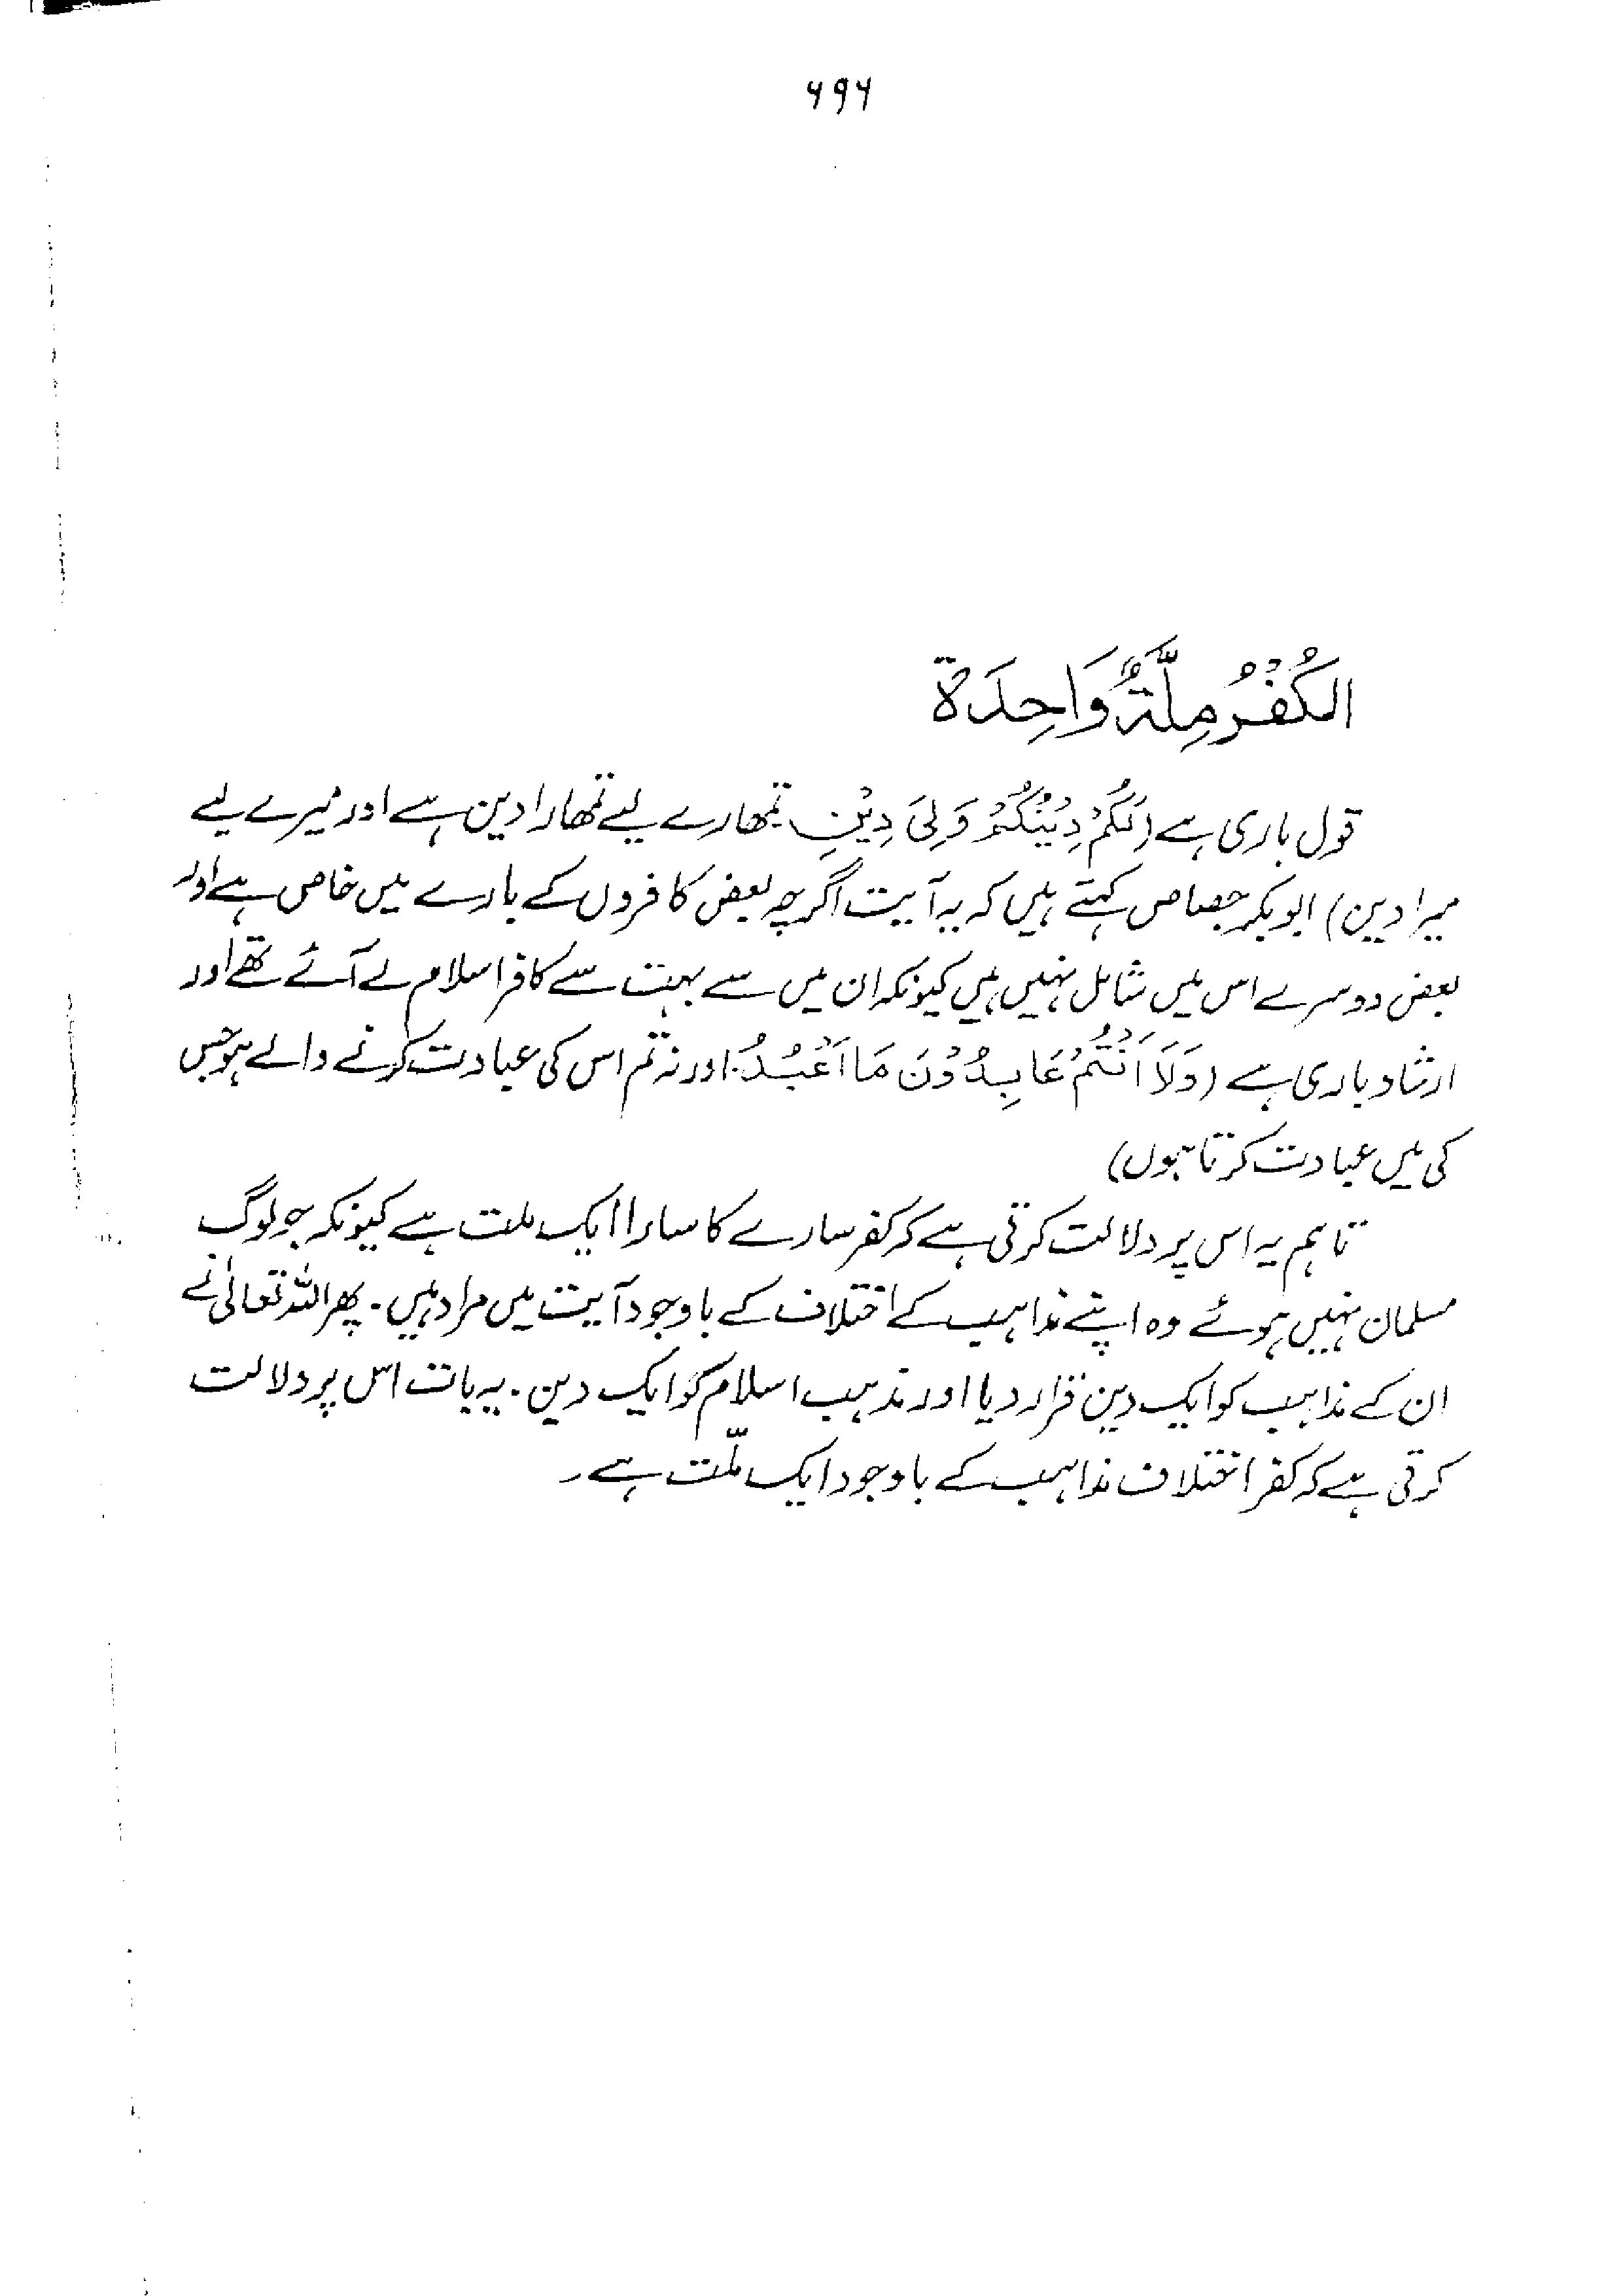 ۶۹۶
الکُفْرُ مِلَّۃٌ وَاحِدَۃ
قول باری ہے (لَکُمْ دِیْنُکُمْ وَلِیَ دِیْنِ۔ تمھارے لیے تمھارا دین ہے اور میرے لیے
میرا دین) ابوبکر جصاص کہتے ہیں کہ یہ آیت اگرچہ بعض کافروں کے بارے میں خاص ہے اور
بعض دوسرے اس میں شامل نہیں ہیں کیونکہ ان میں سے بہت سے کافر اسلام لے آئے تھے اور
ارشاد باری ہے (وَلَا اَنْتُمْ عَابِدُوْنَ مَا اَعْبُدُ۔ اور نہ تم اس کی عبادت کرنے والے ہو جس
کی میں عبادت کرتا ہوں)
تاہم یہ اس پر دلالت کرتی ہے کہ کفر سارے کا سارا ایک ملت ہے کیونکہ جو لوگ
مسلمان نہیں ہوئے وہ اپنے مذاہب کے اختلاف کے باوجود آیت میں مراد ہیں۔ پھر اللہ تعالیٰ نے
ان کے مذاہب کو ایک دین قرار دیا اور مذہب اسلام کو ایک دین۔ یہ بات اس پر دلالت
کرتی ہے کہ کفر اختلاف مذاہب کے باوجود ایک ملّت ہے۔